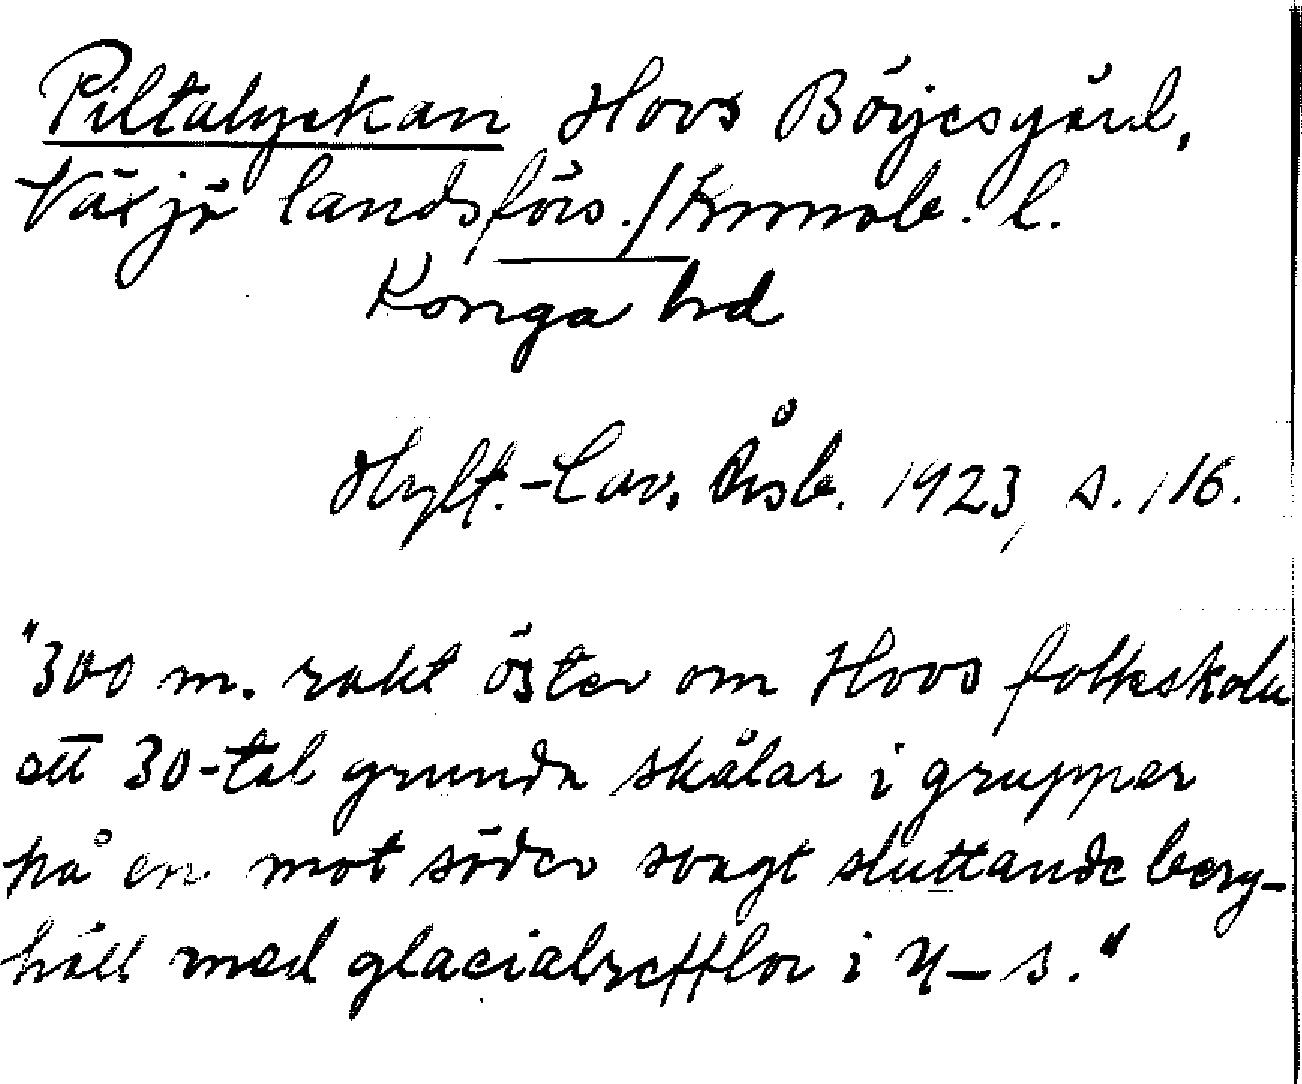 Piltalyckan Hovs Börjesgård,
Växjö landsförs./Kronob. l.
Konga hd
Hylt.-Cav. Årsb. 1923, s. 116.
"300 m. rakt öster om Hovs folkskola
ett 30-tal grunda skålar i grupper
på en mot söder svagt sluttande berg-
häll med glacialrefflor i N-S."